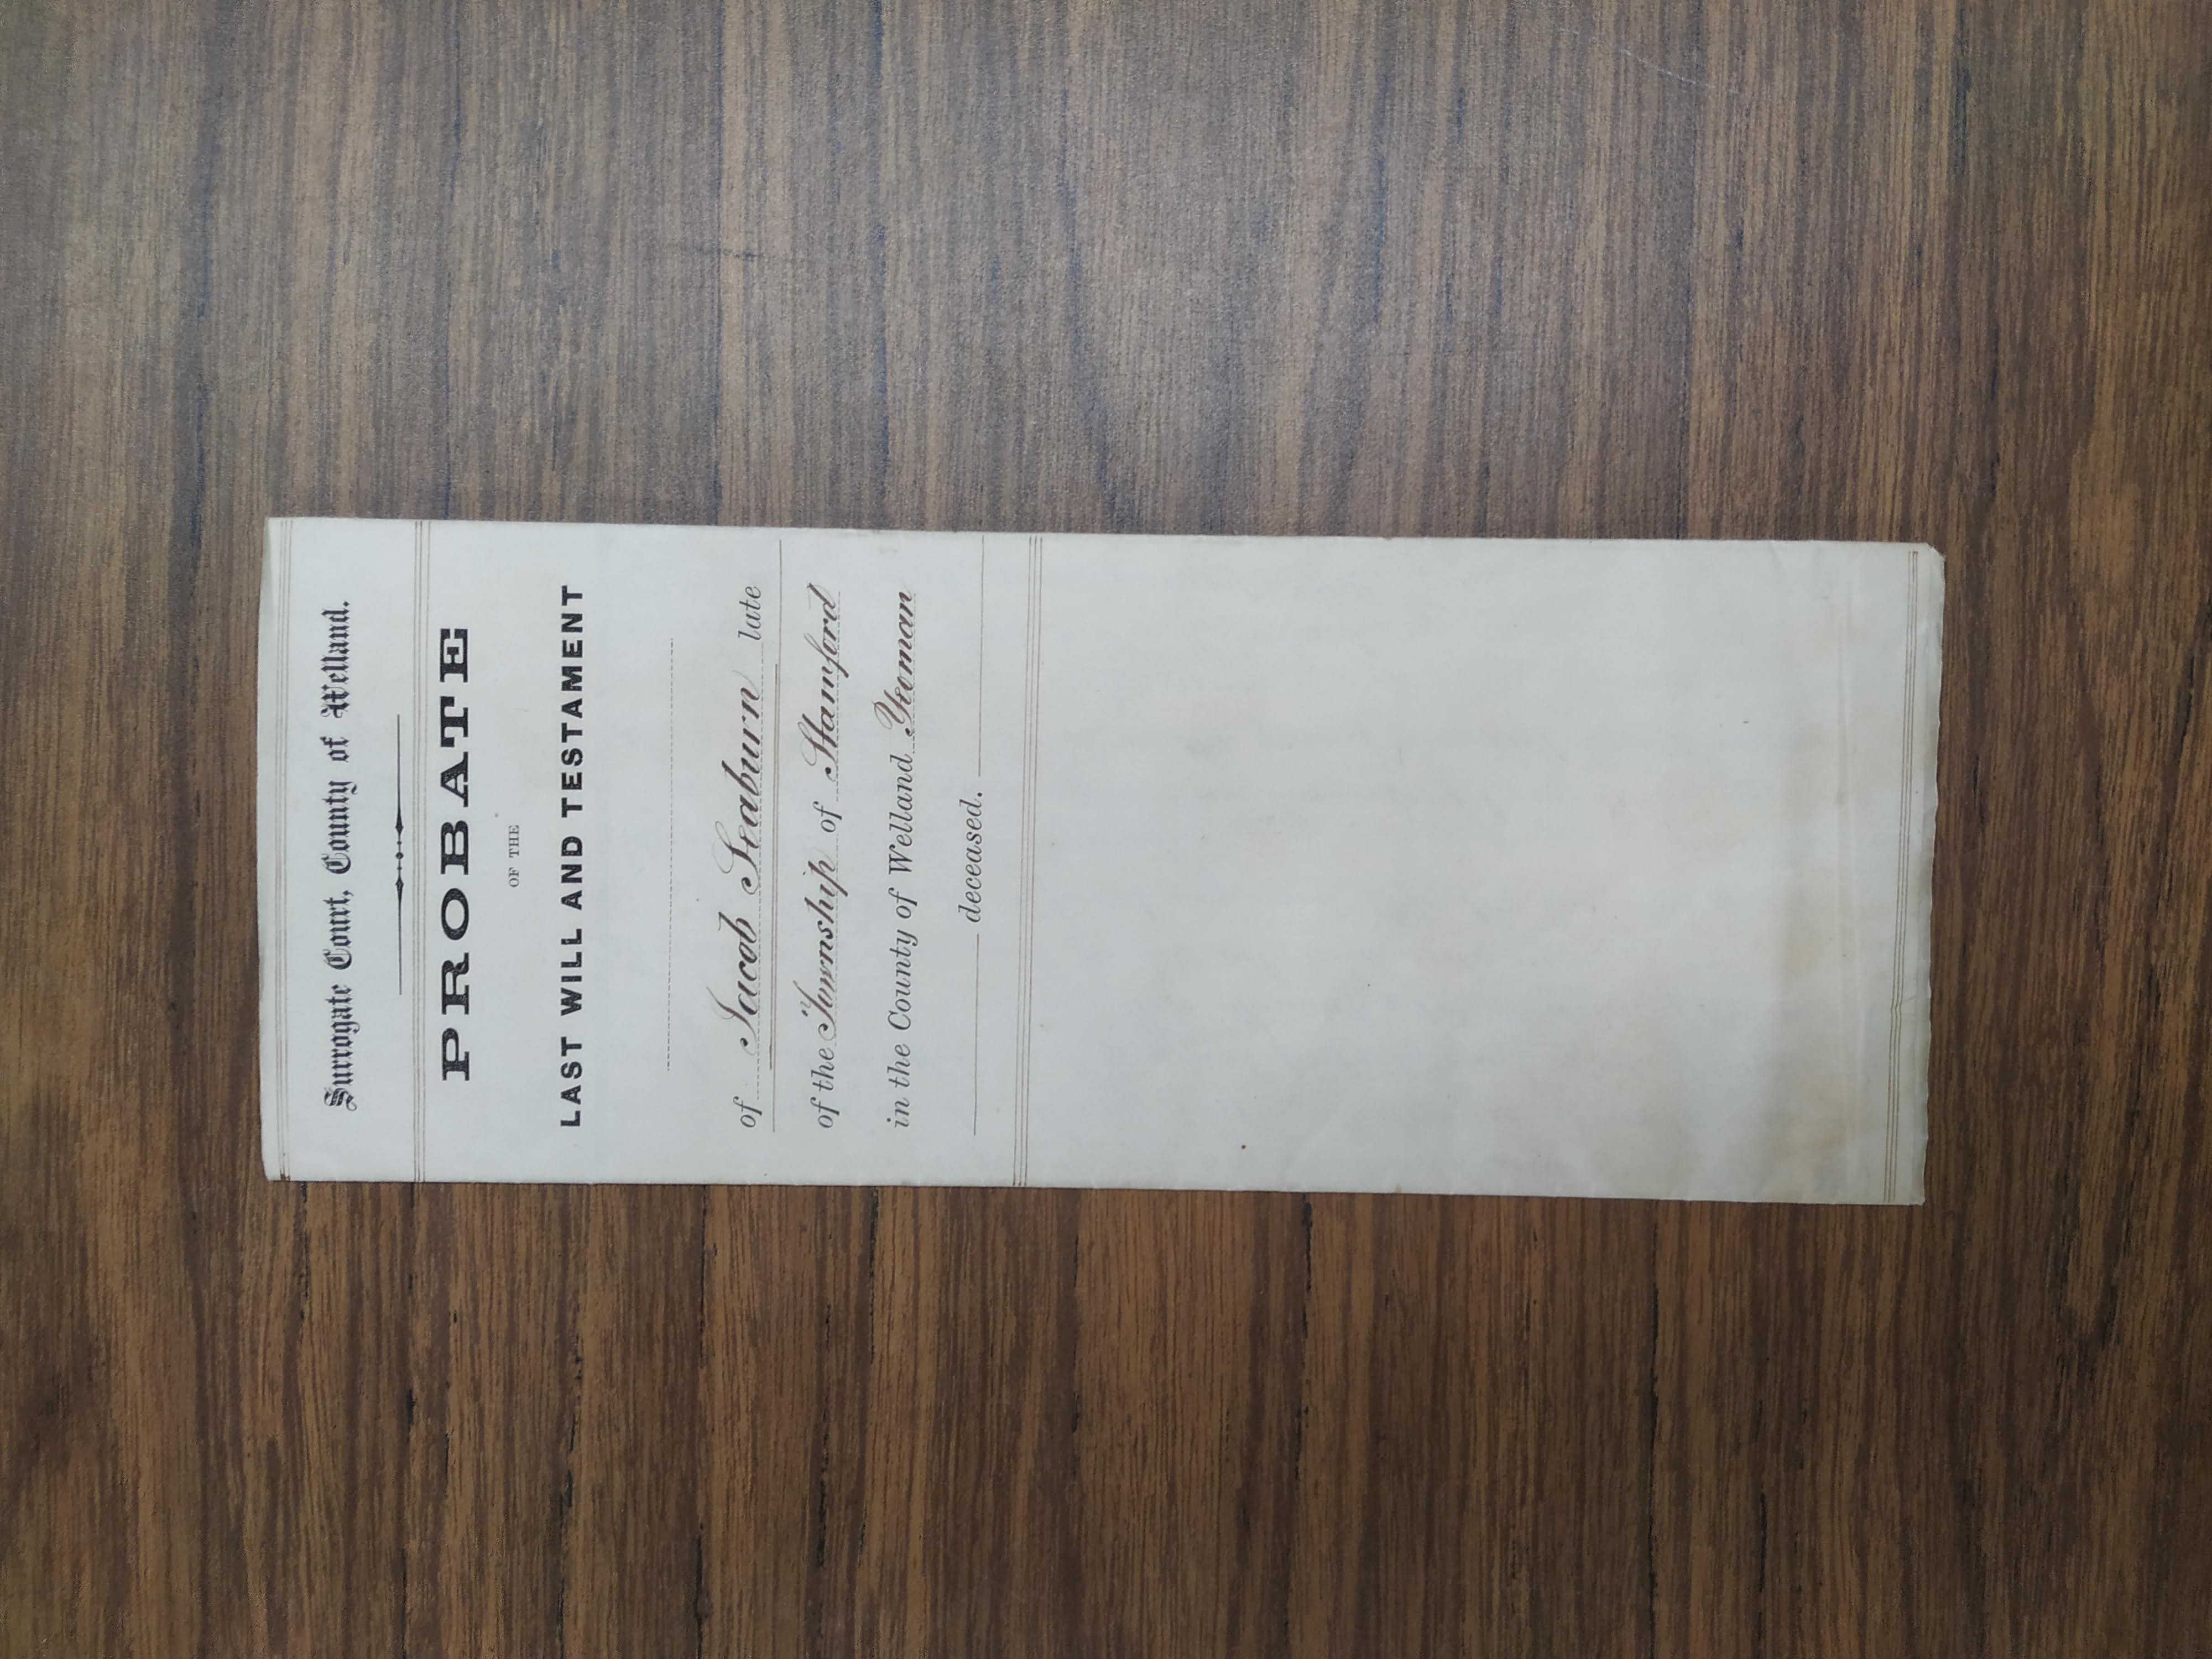 Surrogate Court, County of Welland.
PROBATE
OF THE
LAST WILL AND TESTAMENT
of Jacob Seaburn late
of the Township of Stamford
in the County of Welland Yeoman
deceased.